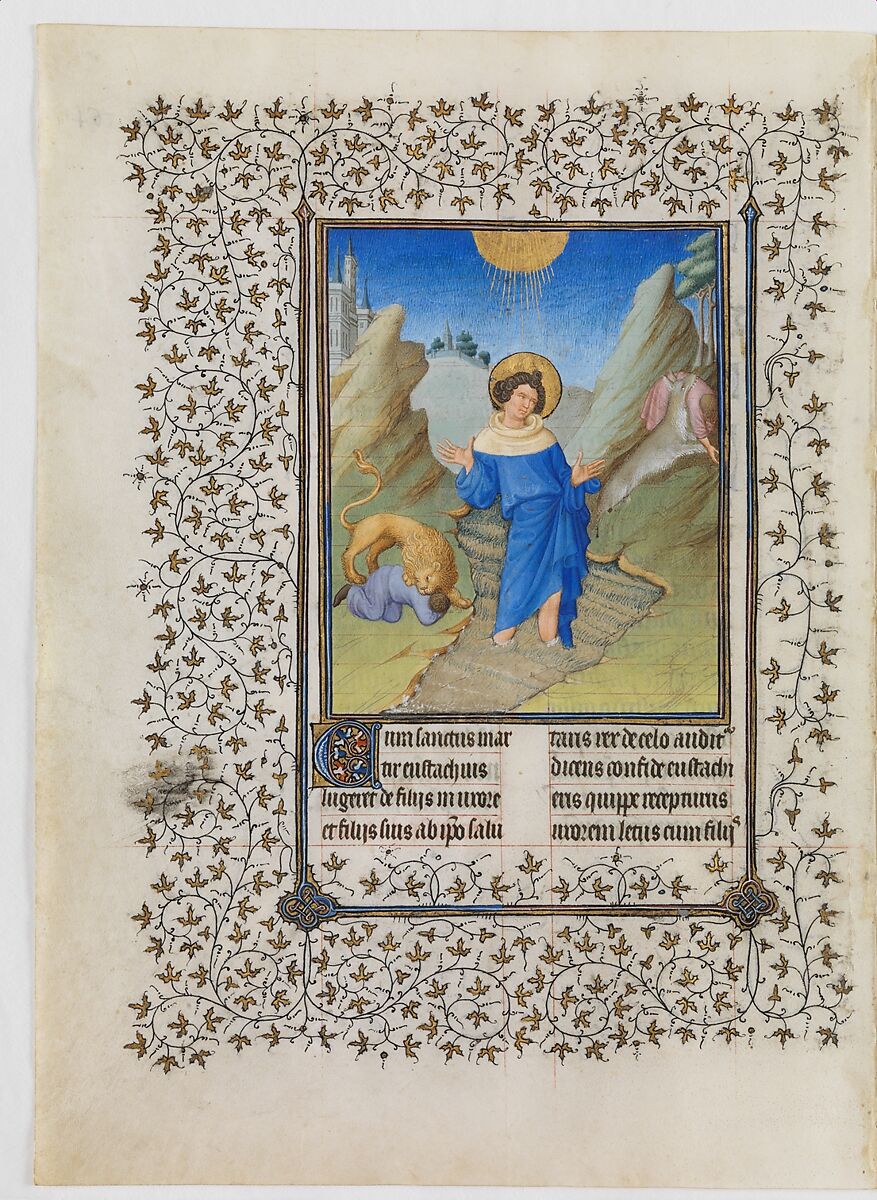 Cum sanctus mar
tir eustachius
lugeret de filijs m uxore
et filijs suis ab ip̃o salu
taris vox de celo audit᷒
dicens confide eustachi
eris quippe recepturus
uxorem letus cum filij᷒